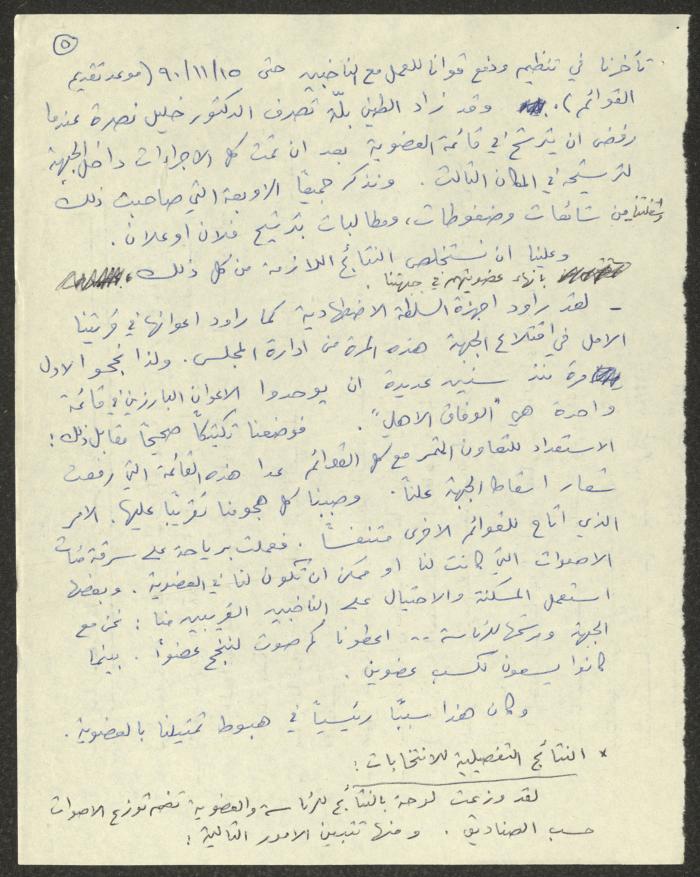 ٥
تأخرنا في تنظيم ودفع قوانا للعمل مع الناخبين حتى ٩٠/١١/١٥ (موعد تقديم
القوائم). وقد زاد الطين بلّة تصرف الدكتور خليل نصرة عندما
رفض ان يترشح في قائمة العضوية بعد ان تمت كل الاجراءات داخل الجبهة
لترشيحه في المكان الثالث. ونذكر جميعًا الزوبعة التي صاحبت ذلك
وشغلتنا من شائعات وضغوطات، ومطالبات بترشيح فلان او علان.
وعلينا ان نستخلص النتائج اللازمة من كل ذلك
بانهاء عضويتهم في جبهتنا.
- لقد راود اجهزة السلطة الاضطهادية كما راود اعوانها في قريتنا
الامل في اقتلاع الجبهة هذه المرة من ادارة المجلس. ولذا نجحوا لاول
مرة منذ سنين عديدة ان يوحدوا الاعوان البارزين في قائمة
واحدة هي "الوفاق الاهلي". فوضعنا تكتيكًا صحيحًا مقابل ذلك:
الاستعداد للتعاون المثمر مع كل القوائم عدا هذه القائمة التي رفعت
شعار اسقاط الجبهة علنًا. وصببنا كل هجومنا تقريبًا عليها. الامر
الذي اتاح للقوائم الاخرى متنفسًا. فعملت برياحة على سرقة مئات
الاصوات التي كانت لنا او ممكن ان تكون لنا في العضوية. وبعضها
استعمل المسكنة والاحتيال على الناخبين القريبين منا: نحن مع
الجبهة ومرشحها للرئاسة .. اعطونا كم صوت لننجح عضوًا. بينما
كانوا يسعون لكسب عضوين.
وكان هذا سببًا رئيسيًا في هبوط تمثيلنا بالعضوية.
* النتائج التفصيلية للانتخابات:
لقد وزعت لوحة بالنتائج للرئاسة والعضوية تضم توزع الاصوات
حسب الصناديق. ومنها تتبين الامور التالية: